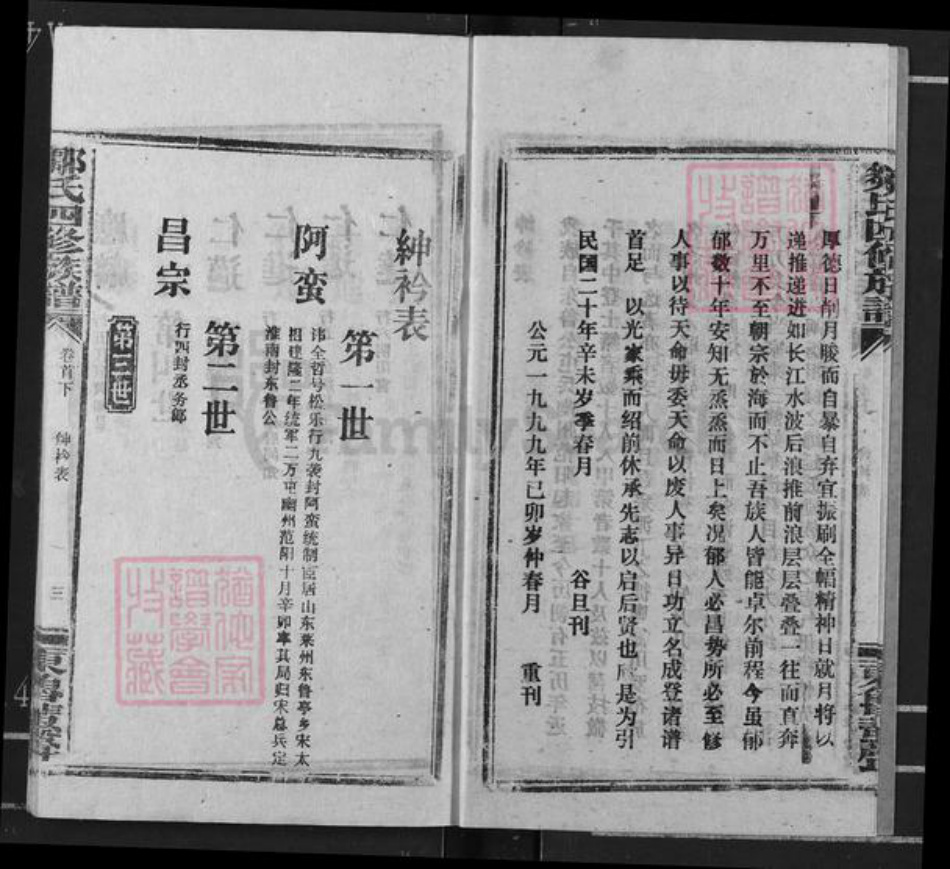 厚德日削月朘而自暴自弃宜振刷全幅精神日就月将以
递推递进如长江水波后浪推前浪层层叠叠一往而直奔
万里不至朝宗於海而不止吾族人皆能卓尔前程今虽郁
郁数十年安知无烝烝而日上矣况郁人必昌势所必至修
人事以待天命毋委天命以废人事异日功立名成登诸谱
首足 以光家乘而绍前休承先志以启后贤也 是为引
民国二十年辛未岁季春月 谷旦刊
公元一九九九年己卯岁仲春月 重刊
紳衿表
第一世
阿蛮
讳全哲号松乐行九袭封阿蛮统制 居山东莱州东鲁亭乡宋太
祖建隆二年统军二万屯幽州范阳十月辛卯率其局归宋总兵定
淮南封东鲁公
第二世
昌宗
行四封丞务郎
第三世
鄒氏四修族譜
卷首下
绅衿表
三
東魯書室